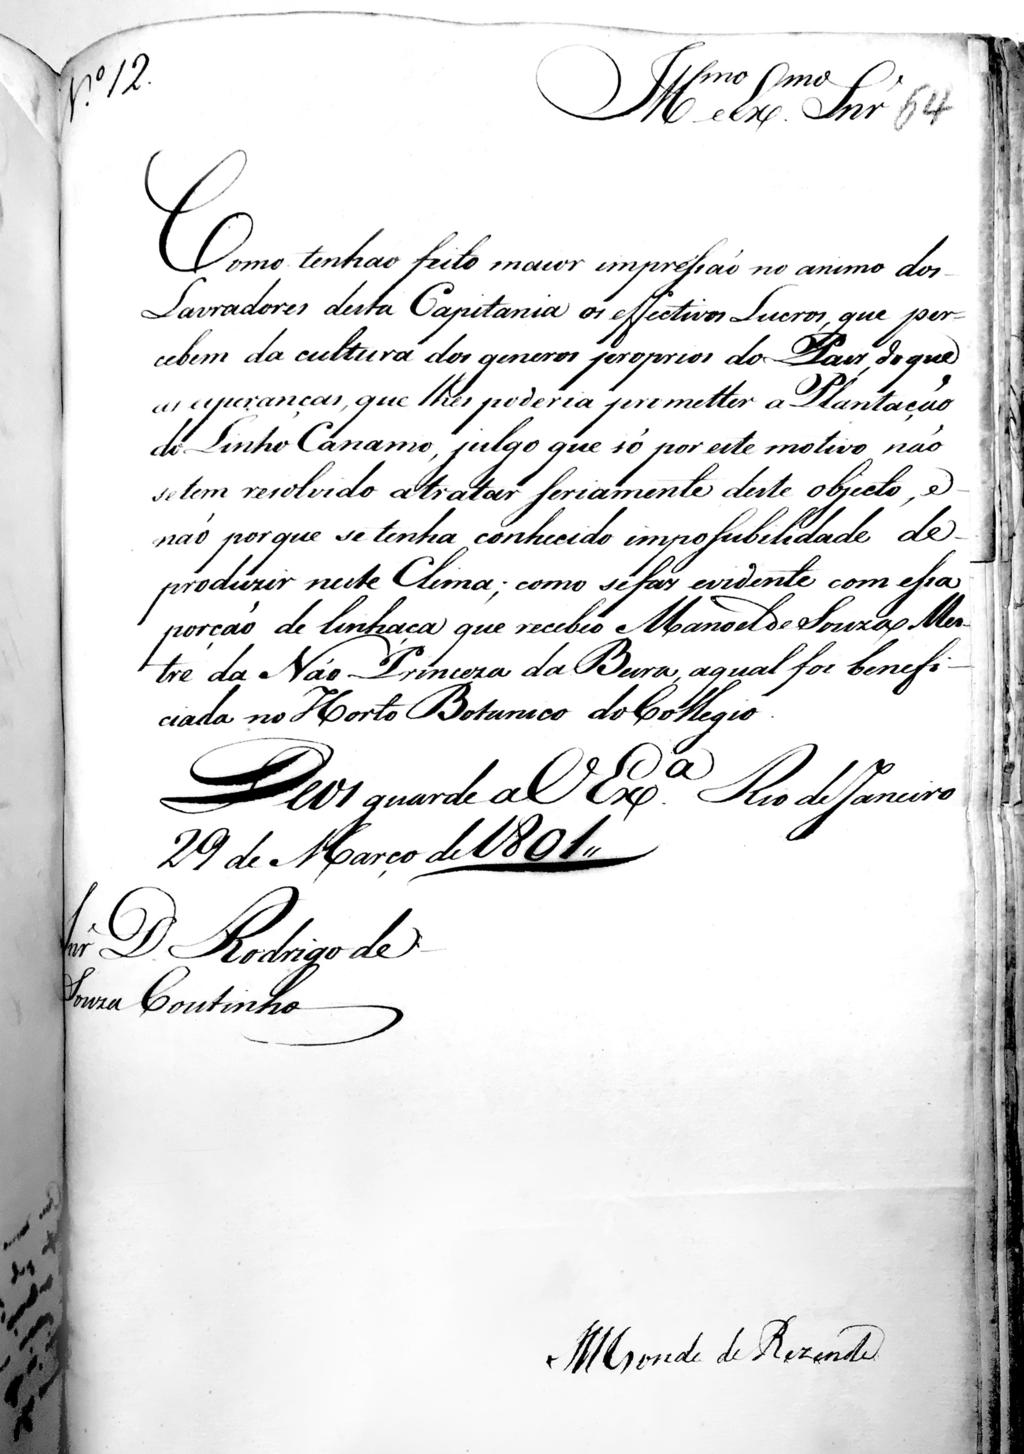 N.º 12.
Ill.mo e Ex.mo Snr̃ 64
Como tenhaõ feito maior impressaõ no animo dos
Lavradores desta Capitania os effectivos Lucros, que per-
cebem da cultura dos generos proprios do Paiz, do que
as esperanças, que lhes poderia prometter a Plantaçaõ
do Linho Canamo, julgo que só por este motivo naõ
se tem resolvido a tratar seriamente deste objecto, e
naõ porque se tenha conhecido impossibilidade de
produzir neste Clima; como se faz evidente com essa
porçaõ de linhaça que recebeo Manoel de Souza, Mes-
tre da Náo Princeza da Beira, a qual foi benefi-
ciada no Horto Botanico do Collegio.
Deos guarde a V Ex.ª Rio de Janeiro
29 de Março de 1801„
Snr̃ D. Rodrigo de
Souza Coutinho
Conde de Rezende